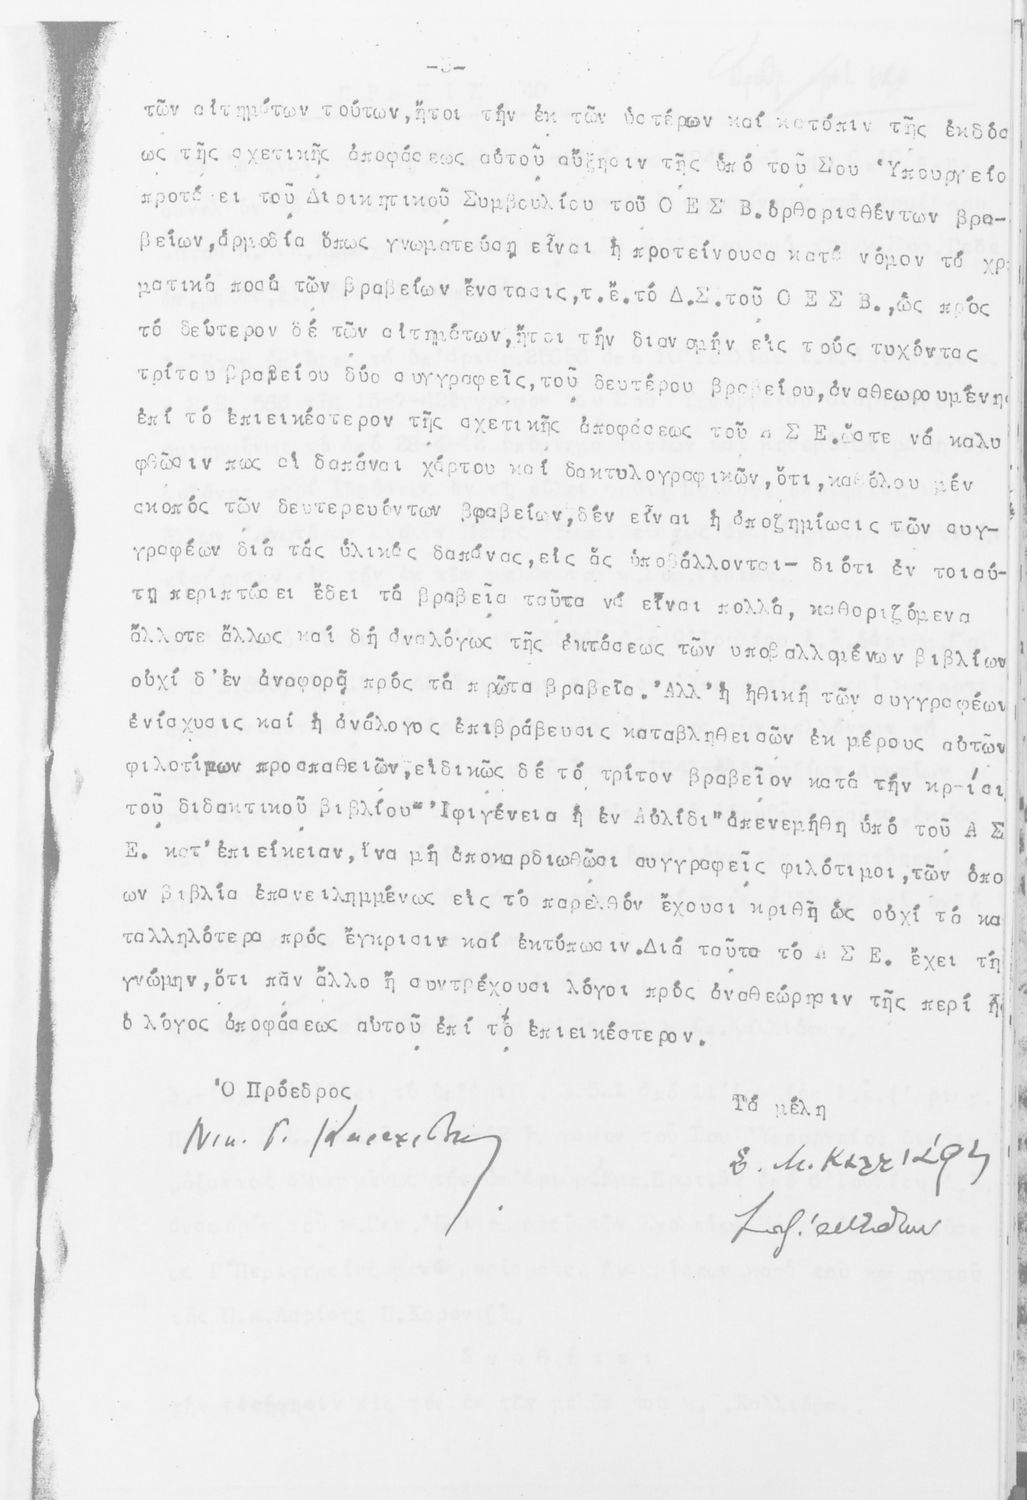 -3-
τῶν αἰτημάτων τούτων,ἤτοι τήν ἐκ τῶν ὑστέρων καί κατόπιν τῆς ἐκδόσ
ως τῆς σχετικῆς ἀποφάσεως αὐτοῦ αὔξησιν τῆς ὑπό τοῦ Σου Ὑπουργείο
προτάσει τοῦ Διοικητικοῦ Συμβουλίου τοῦ Ο Ε Σ Β. ὁρθορισθέντων βρα-
βείων,ἁρμοδία ὅπως γνωματεύσῃ εἶναι ἡ προτείνουσα κατά νόμον τά χρη
ματικά ποσά τῶν βραβείων ἔνστασις,τ.ἔ.τό Δ.Σ.τοῦ Ο Ε Σ Β.,ὡς πρός
τό δεύτερον δέ τῶν αἰτημάτων,ἤτοι τήν διανομήν εἰς τούς τυχόντας
τρίτου βραβείου δύο συγγραφεῖς,τοῦ δευτέρου βραβείου,ἀναθεωρουμένης
ἐπί τό ἐπιεικέστερον τῆς σχετικῆς ἀποφάσεως τοῦ Α Σ Ε.ὥστε νά καλυ
φθῶσιν πως αἱ δαπάναι χάρτου καί δακτυλογραφικῶν,ὅτι,καθόλου μέν
σκοπός τῶν δευτερευόντων βραβείων,δέν εἶναι ἡ ἀποζημίωσις τῶν συγ-
γραφέων διά τάς ὑλικάς δαπάνας,εἰς ἅς ὑποβάλλονται- διότι ἐν τοιαύ-
τῃ περιπτώσει ἔδει τά βραβεῖα ταῦτα νά εἶναι πολλά, καθοριζόμενα
ἄλλοτε ἄλλως καί δή ἀναλόγως τῆς ἐκτάσεως τῶν υποβαλλομένων βιβλίων
οὐχί δ'ἐν ἀναφορᾷ πρός τά πρῶτα βραβεῖα.'Αλλ'ἡ ἠθική τῶν συγγραφέων
ἐνίσχυσις καί ἡ ἀνάλογος ἐπιβράβευσις καταβληθεισῶν ἐκ μέρους αὐτῶν
φιλοτίμων προσπαθειῶν,εἰδικῶς δέ τό τρίτον βραβεῖον κατά τήν κρίσι
τοῦ διδακτικοῦ βιβλίου"'Ιφιγένεια ἡ ἐν Αὐλίδι"ἀπενεμήθη ὑπό τοῦ Α Σ
Ε. κατ'ἐπιείκειαν,ἵνα μή ἀποκαρδιωθῶσι συγγραφεῖς φιλότιμοι,τῶν ὁπο
ων βιβλία ἐπανειλημμένως εἰς τό παρελθόν ἔχουσι κριθῆ ὡς οὐχί τά κα
ταλληλότερα πρός ἔγκρισιν καί ἐκτύπωσιν.Διά ταῦτα τό Α Σ Ε. ἔχει τή
γνώμην,ὅτι πᾶν ἄλλο ἤ συντρέχουσι λόγοι πρός ἀναθεώρησιν τῆς περί ἧς
ὁ λόγος ἀποφάσεως αὐτοῦ ἐπί τό ἐπιεικέστερον.
'Ο Πρόεδρος
Τά μέλη
Νικ. Γ.
Σ. Μ.